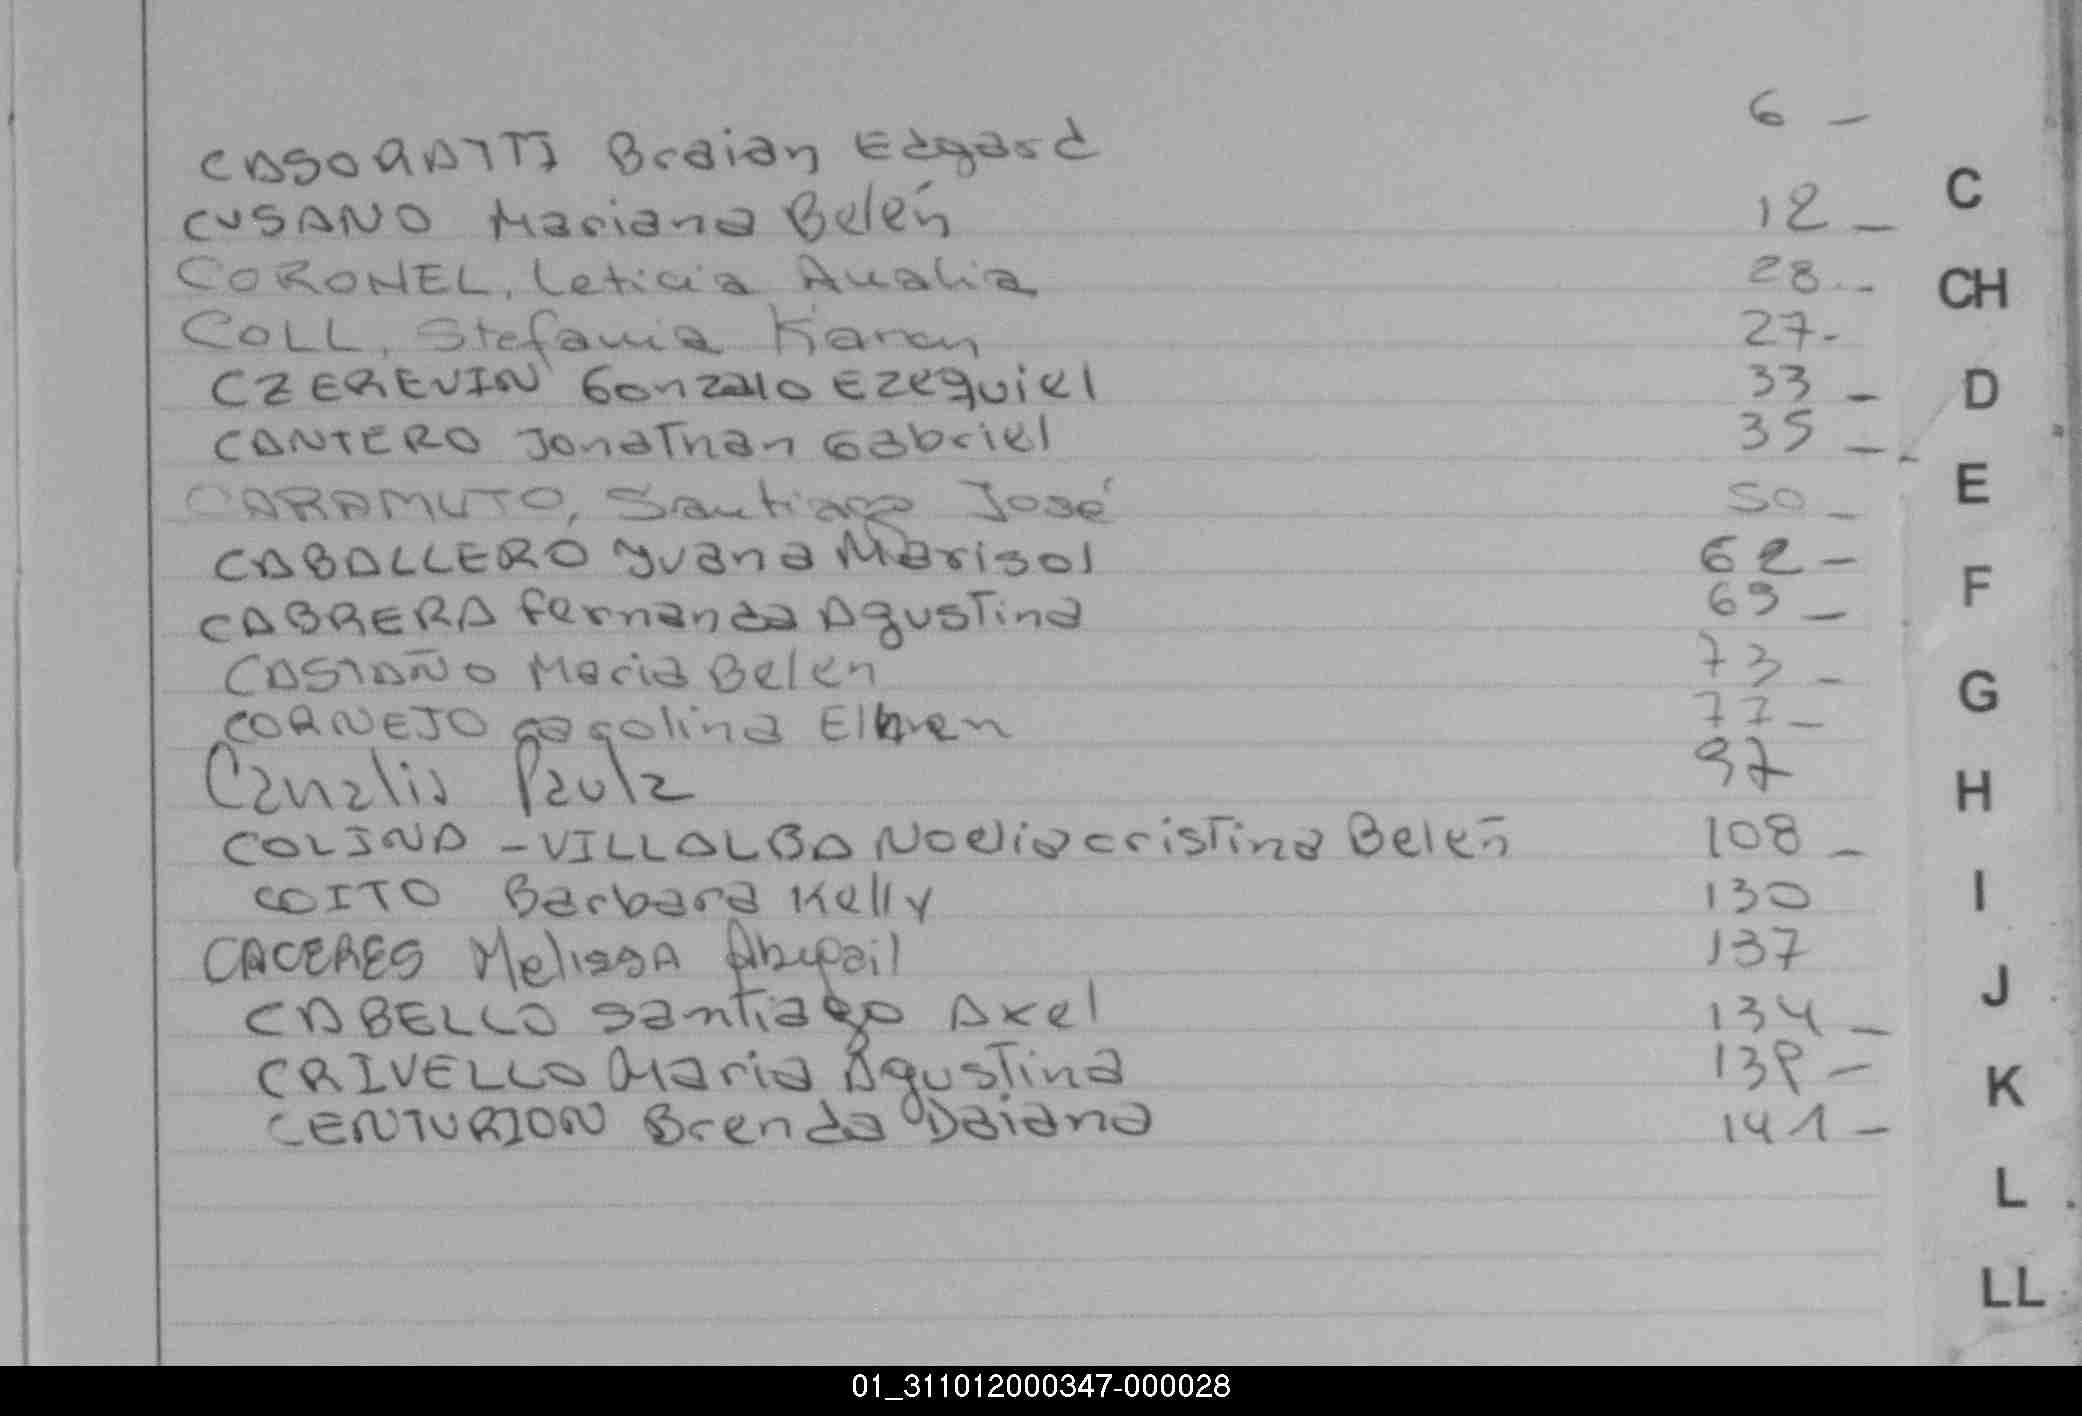 CASORATTI Braian Edgard 6 -
CUSANO Mariana Belén 12 -
CORONEL, Leticia Analia 28 -
COLL, Stefania Karen 27-
CZEREVIN Gonzalo Ezequiel 33 -
CANTERO Jonathan Gabriel 35 -
CARAMUTO, Santiago José 50 -
CABALLERO Yvana Marisol 62 -
CABRERA Fernanda Agustina 69 -
CASTAÑO Maria Belen 73 -
CORNEJO 77 -
Canalis Paula 97
COLINA - VILLALBA Noelia cristina Belén 108 -
COITO Barbara Kelly 130
CACERES Melissa Abigail 137
CABELLO Santiago Axel 134 -
CRIVELLO Maria Agustina 139 -
CENTURION Brenda Daiana 141 -
C
CH
D
E
F
G
H
I
J
K
L
LL
01_311012000347-000028